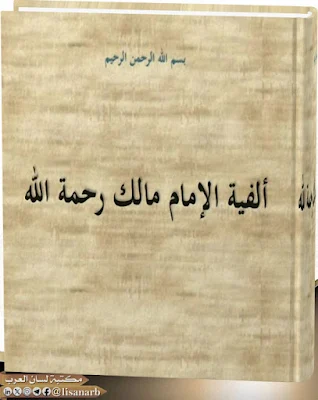 بسم الله الرحمن الرحيم
ألفية الإمام مالك رحمة الله
مكتبة لسان العرب
@lisanarb